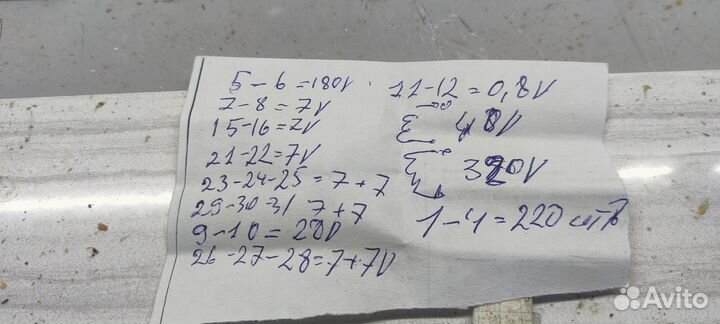 5-6=180V
7-8=7V
15-16=7V
21-22=7V
23-24-25=7+7
29-30-31 7+7
9-10=20V
26-27-28=7+7V
11-12=0,8V
V
V
1-4=220
Avito